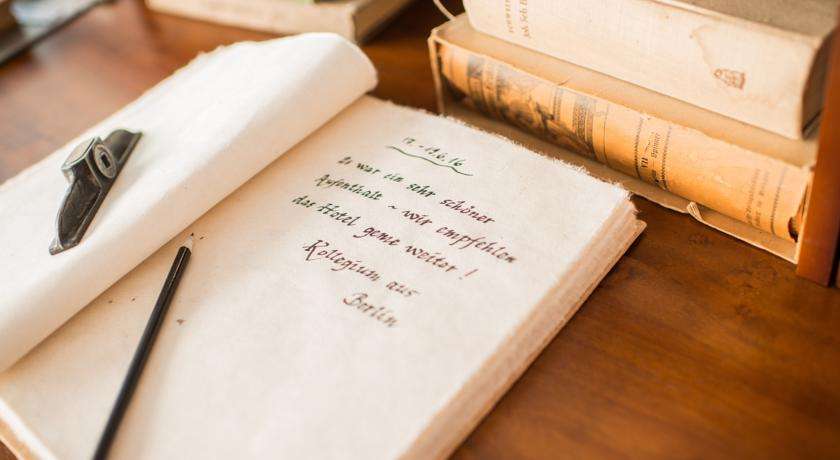 12.-13.6.16
Es war ein sehr schöner
Aufenthalt ~ wir empfehlen
das Hotel gerne weiter!
Kollegium aus
Berlin